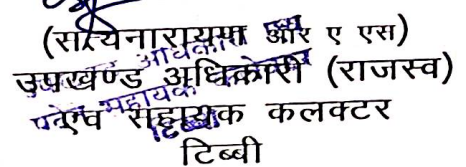 (सत्यनारायण आर ए एस)
उपखण्ड अधिकारी (राजस्व)
एवं सहायक कलक्टर
टिब्बी